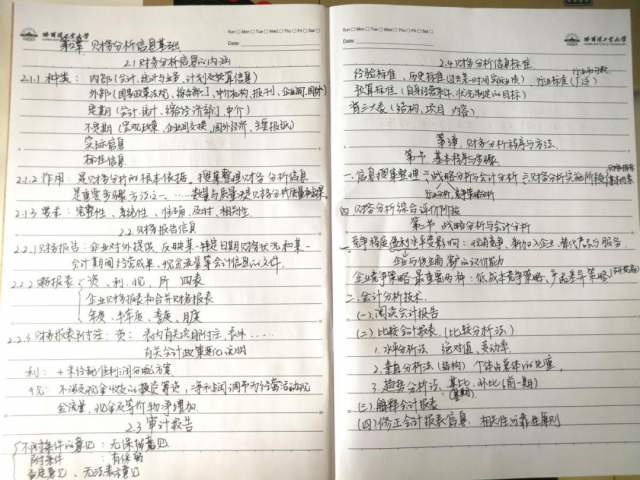 哈尔滨工业大学
Sun Mon Tue Wed Thu Fri Sat
Date:
第2章 财务分析信息基础
2.1 财务分析信息的内涵
2.1.1 种类：内部(会计、统计与业务、计划及预算信息)
外部(国家政策法规、综合部门、中介机构、报刊、企业间、国外)
定期(会计、统计、综合经济部门、中介)
不定期(宏观政策、企业间交换、国外经济、主要报纸)
实际信息
标准信息
2.1.2 作用：是财务分析的根本依据，搜集整理财务分析信息
是重要步骤方法之一，……数量与质量决定财务分析质量和效果。
2.1.3 要求：完整性、系统性、准确、及时、相关性
2.2 财务报告信息
2.2.1 财务报告：企业对外提供，反映某一特定日期财务状况和某一
会计期间经营成果、现金流量等会计信息的文件.
2.2.2 财报表 资、利、现、所 四表
企业财务报表和合并财务报表
年度、半年度、季度、月度
2.2.3 财务报表附注：资：表内有关项目附注，表外……
有关会计政策变化说明
利：+未经配的利润分配方案
现：不涉及现金收支的投资筹资，净利润调节为经营活动现
金流量，现金及等价物净增加.
2.3 审计报告
不附条件的意见：无保留意见
附条件：有保留
否定意见、无法表示意见
哈尔滨工业大学
Sun Mon Tue Wed Thu Fri Sat
Date:
2.4 财务分析信息标准
经验标准、历史标准(过去某一时间实际业绩)、行业标准(行业
预算标准(自身经营条件、状况制定的目标)
有三大表(结构、项目、内容)
第3章 财务分析程序与方法.
第一节 基本程序与步骤
一.信息搜集整理 二.战略分析与会计分析 三.财务分析实施阶段
行业分析 竞争策略分析
四.财务分析综合评价阶段
第二节 战略分析与会计分析
竞争程度盈利水平受影响：现有竞争、新加入企业、替代产品与服务
企业与供应商、客户的议价能力
企业竞争策略最重要两种：低成本竞争策略、产品差异策略
二.会计分析技术.
(一)阅读会计报告
(二)比较会计报表(比较分析法)
1.水平分析法 绝对值、变动率.
2.垂直分析法(结构)个体占总体的比重.
3.趋势分析法. 定比、环比(前一期)
(三)解释会计报表
(四)修正会计报表信息. 相关性可靠性原则